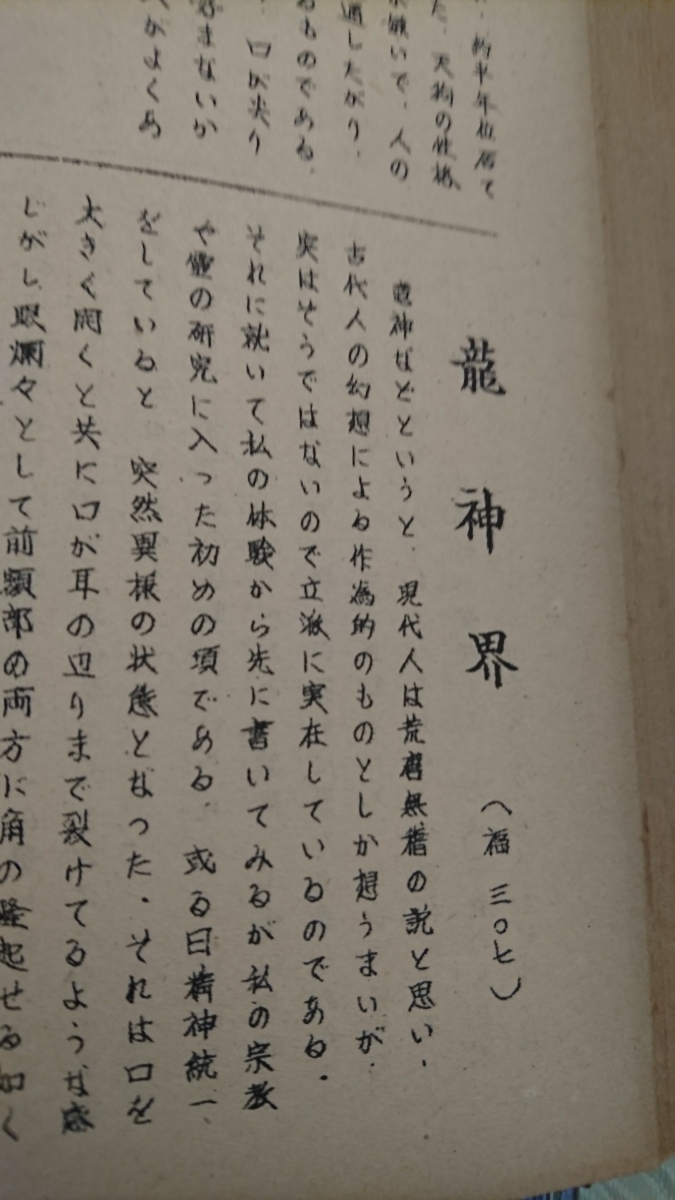 約半年位居て
た．天狗の性格
嫌いで．人の
通したがり．
ものである．
口が尖り
好まないか
がよくあ
龍神界
（福 三〇七）
竜神などというと．現代人は荒唐無稽の説と思い．
古代人の幻想による作為的のものとしか想うまいが．
実はそうではないので立派に実在しているのである．
それに就いて私の体験から先に書いてみるが私の宗教
や霊の研究に入った初めの項である．或る日精神統一、
をしていると 突然異様の状態となった．それは口を
大きく開くと共に口が耳の辺りまで裂けてるような感
じがし眼爛々として前額部の両方に角の隆起せる如く